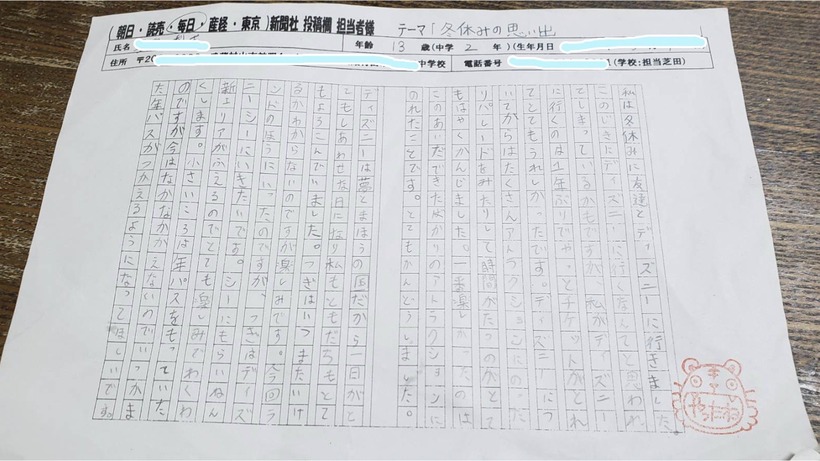 (朝日・読売・毎日・産経・東京)新聞社 投稿欄 担当者様 テーマ「冬休みの思い出
氏名 年齢 13 歳(中学 2 年)(生年月日
住所 〒20 中学校 電話番号 (学校:担当芝田)
私は冬休みに友達とディズニーに行きました
このじきにディズニーに行くなんてと思われ
てしまっているかもですが、私がディズニー
に行くのは1年ぶりでやっとチケットがとれ
てとてもうれしかったです。ディズニーにつ
いてからはたくさんアトラクションにのった
りパレードをみたりして時間がたつのがとて
もはやくかんじました。一番楽しかったのは
このあいだできたばかりのアトラクションに
のれたことです。とてもかんどうしました。
ディズニーは夢とまほうの国だから一日がと
てもしあわせな日になり私もともだちもとて
もよろこんでいました。つぎはいつまたいけ
るかわからないのですが楽しみです。今回ラ
ンドのほうにいったのですが、つぎはディズ
ニーシーにいきたいです。シーにもらいねん
新エリアがふえるのでとても楽しみでわくわ
くします。小さいころは年パスをもっていた
のですが今はなかなかかえないのでいつかま
た年パスがつかえるようになってほしいです。
やったね